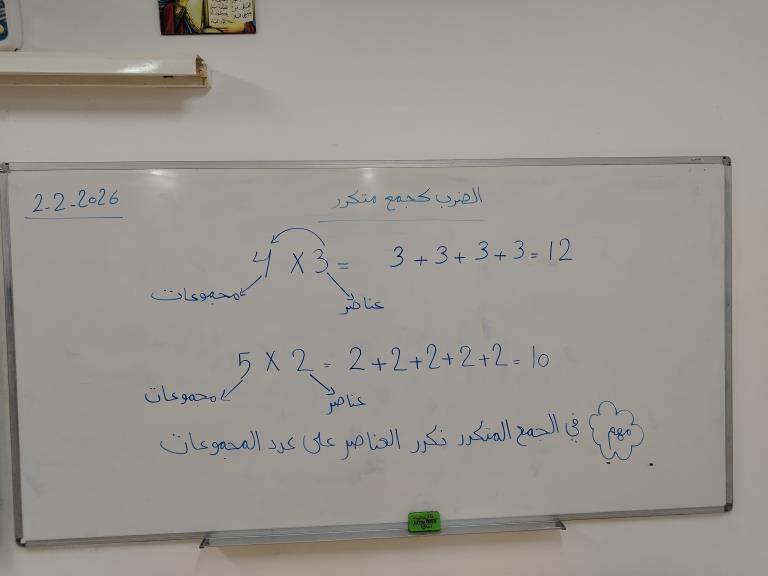 2-2-2026
الضرب كجمع متكرر
4 X 3 = 3 + 3 + 3 + 3 = 12
مجموعات عناصر
5 X 2 = 2 + 2 + 2 + 2 + 2 = 10
مجموعات عناصر
مهم في الجمع المتكرر نكرر العناصر على عدد المجموعات